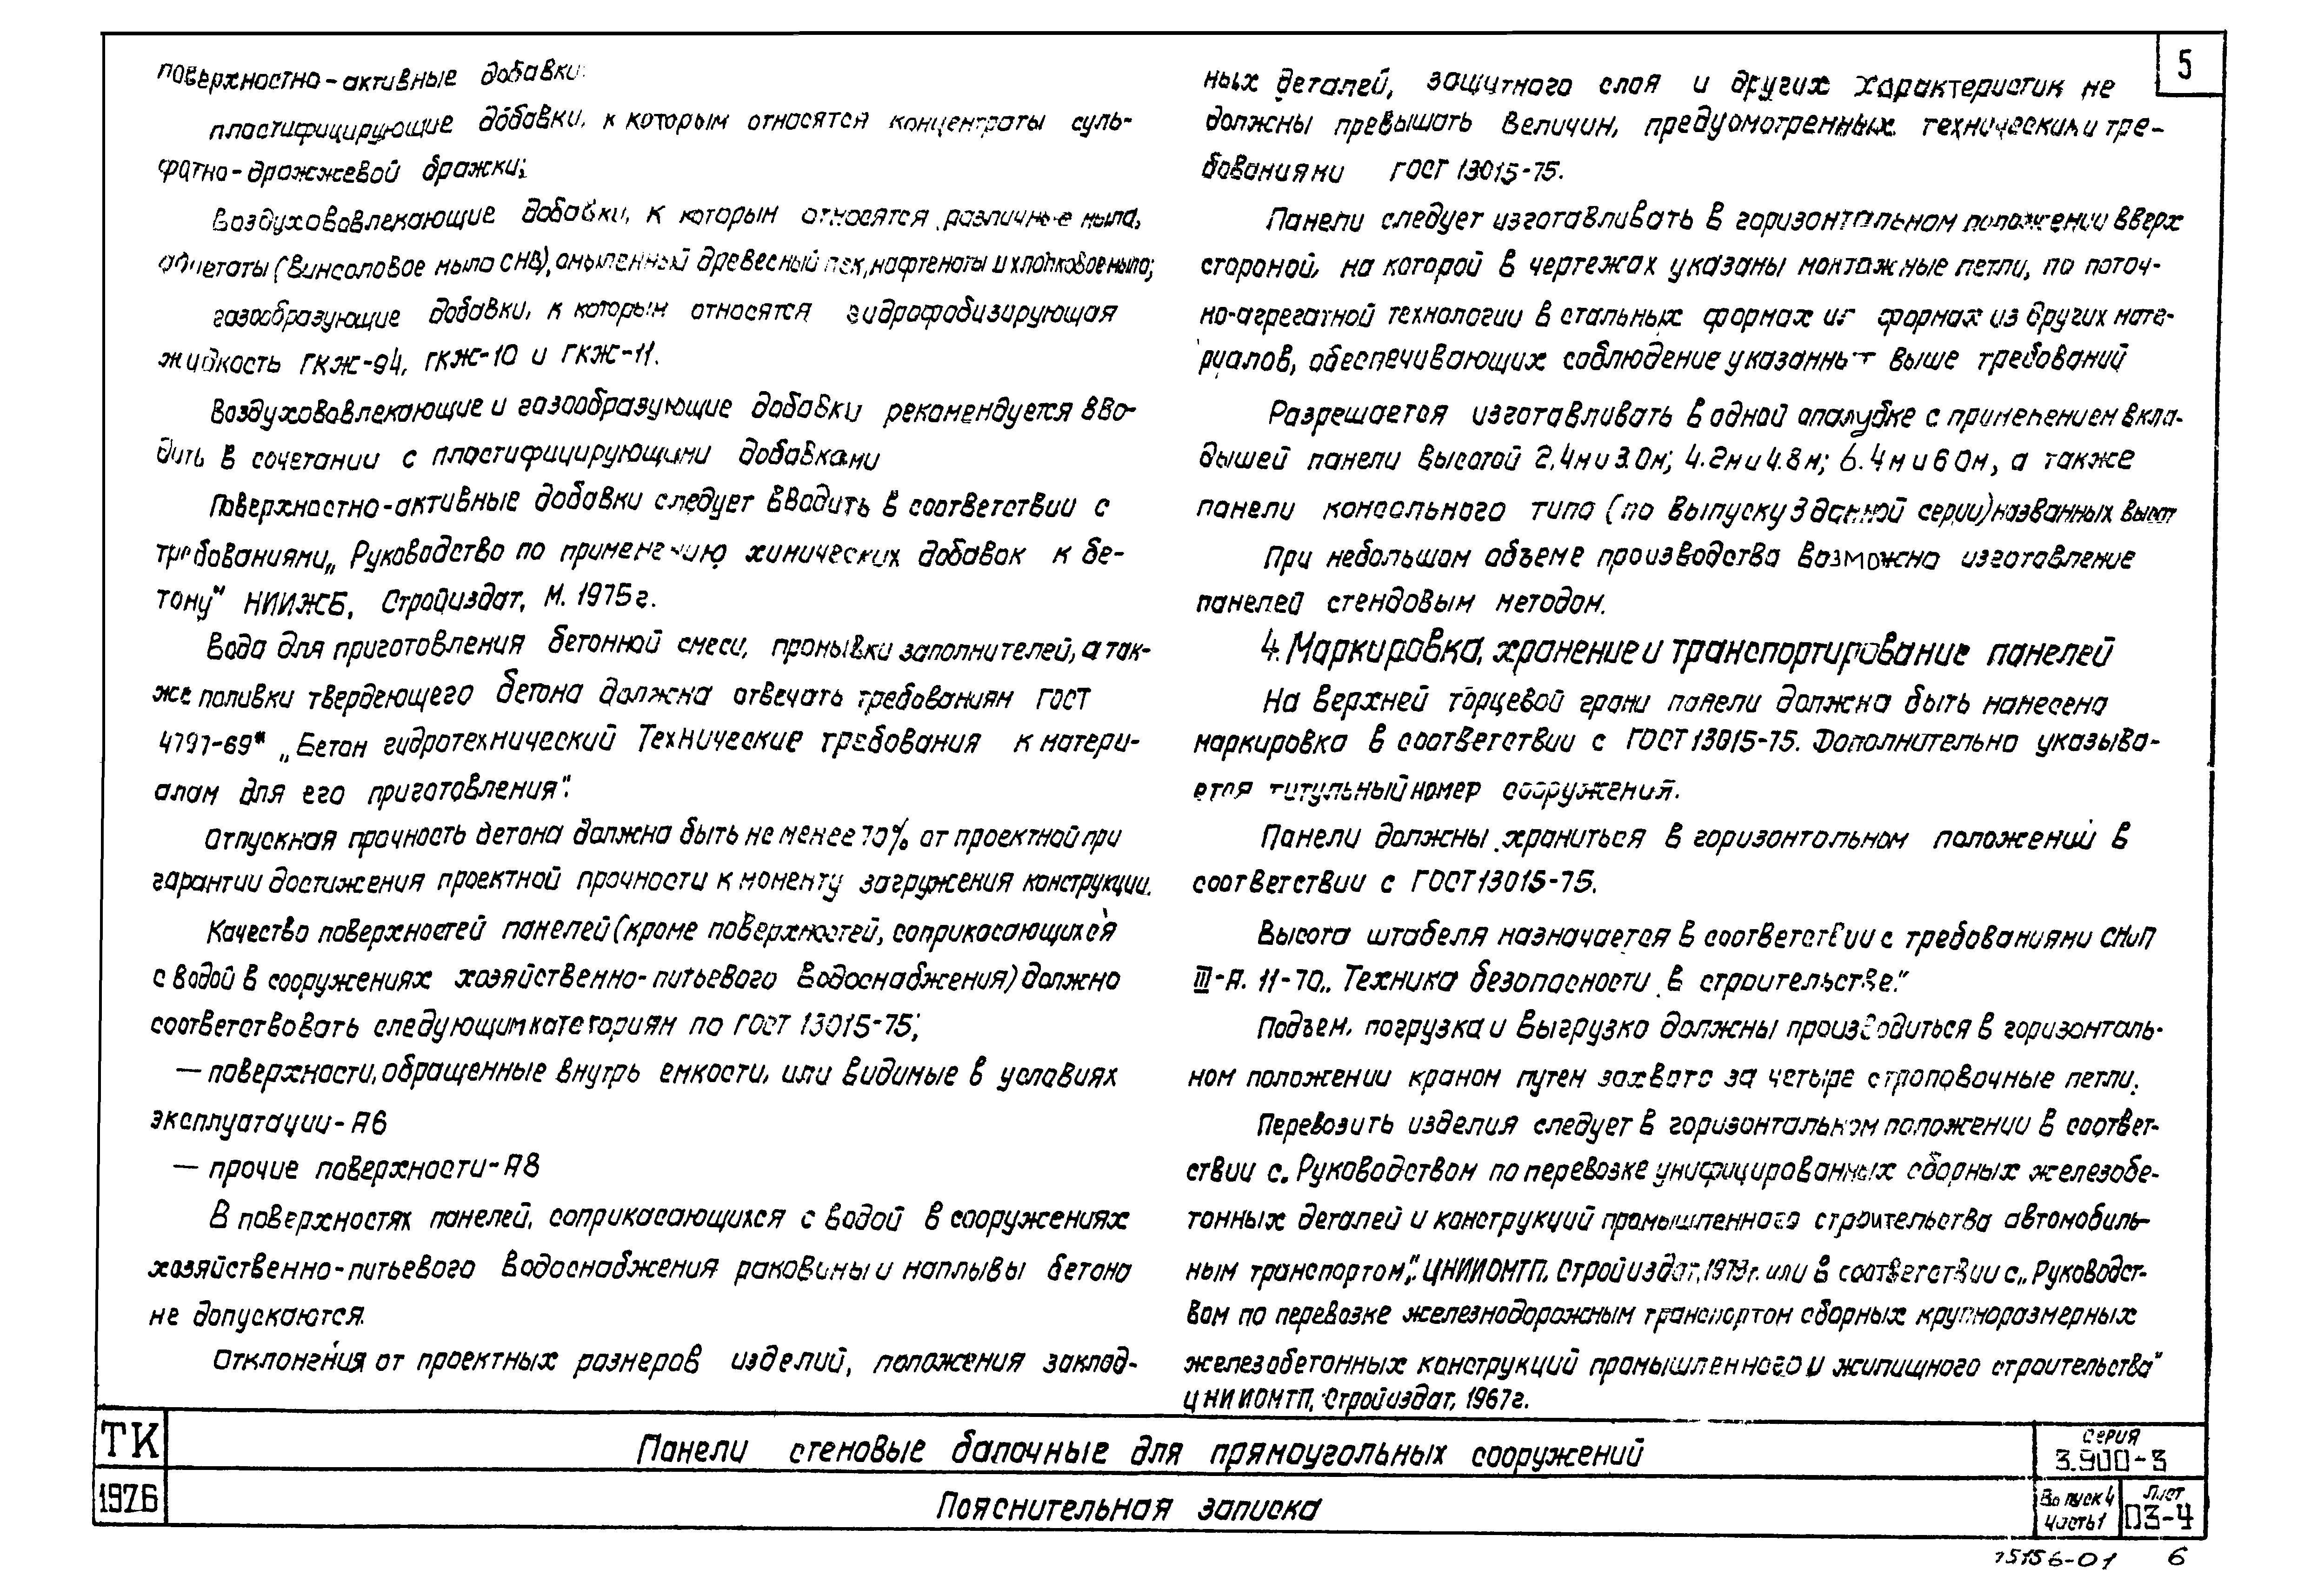 поверхностно-активные добавки:
пластифицирующие добавки, к которым относятся концентраты суль-
фатно-дрожжевой бражки;
Воздухововлекающие добавки, к которым относятся различные мыла,
абиетаты (винсоловое мыло СНВ), омыленный древесный пек, нафтенаты и хлопковое мыло;
газообразующие добавки, к которым относятся гидрофобизирующая
жидкость ГКЖ-94, ГКЖ-10 и ГКЖ-11.
Воздухововлекающие и газообразующие добавки рекомендуется вво-
дить в сочетании с пластифицирующими добавками
Поверхностно-активные добавки следует вводить в соответствии с
требованиями „Руководство по применению химических добавок к бе-
тону" НИИЖБ, Стройиздат, М. 1975г.
Вода для приготовления бетонной смеси, промывки заполнителей, а так-
же поливки твердеющего бетона должна отвечать требованиям ГОСТ
4797-69* „Бетон гидротехнический Технические требования к матери-
алам для его приготовления".
Отпускная прочность бетона должна быть не менее 70% от проектной при
гарантии достижения проектной прочности к моменту загружения конструкции.
Качество поверхностей панелей (кроме поверхностей, соприкасающихся
с водой в сооружениях хозяйственно-питьевого водоснабжения) должно
соответствовать следующим категориям по ГОСТ 13015-75;
— поверхности, обращенные внутрь емкости, или видимые в условиях
эксплуатации-А6
— прочие поверхности-А8
В поверхностях панелей, соприкасающихся с водой в сооружениях
хозяйственно-питьевого водоснабжения раковины и наплывы бетона
не допускаются.
Отклонения от проектных размеров изделий, положения заклад-
5
ных деталей, защитного слоя и других характеристик не
должны превышать величин, предусмотренных техническими тре-
бованиями ГОСТ 13015-75.
Панели следует изготавливать в горизонтальном положении вверх
стороной, на которой в чертежах указаны монтажные петли, по поточ-
но-агрегатной технологии в стальных формах и формах из других мате-
риалов, обеспечивающих соблюдение указанных выше требований
Разрешается изготавливать в одной опалубке с применением вкла-
дышей панели высотой 2,4м и 3.0м; 4.2м и 4.8м; 6.4м и 6 0м, а также
панели консольного типа (по выпуску 3 данной серии) названных высот
При небольшом объеме производства возможно изготовление
панелей стендовым методом.
4. Маркировка, хранение и транспортирование панелей
На верхней торцевой грани панели должна быть нанесена
маркировка в соответствии с ГОСТ 13015-75. Дополнительно указыва-
ется титульный номер сооружения.
Панели должны храниться в горизонтальном положений в
соответствии с ГОСТ 13015-75.
Высота штабеля назначается в соответствии с требованиями СНиП
III-А. 11-70„ Техника безопасности в строительстве."
Подъем, погрузка и выгрузка должны производиться в горизонталь-
ном положении краном путем захвата за четыре строповочные петли.
Перевозить изделия следует в горизонтальном положении в соответ-
ствии с„ Руководством по перевозке унифицированных сборных железобе-
тонных деталей и конструкций промышленного строительства автомобиль-
ным транспортом", ЦНИИОМТП, Стройиздат, 1973г. или в соответствии с„ Руководст-
вом по перевозке железнодорожным транспортом сборных крупноразмерных
железобетонных конструкций промышленного и жилищного строительства"
ЦНИИОМТП, Стройиздат, 1967г.
ТК
1976
Панели стеновые балочные для прямоугольных сооружений
Пояснительная записка
Серия
3.900-3
Выпуск 4
Часть 1
Лист
ПЗ-4
15156-01 6